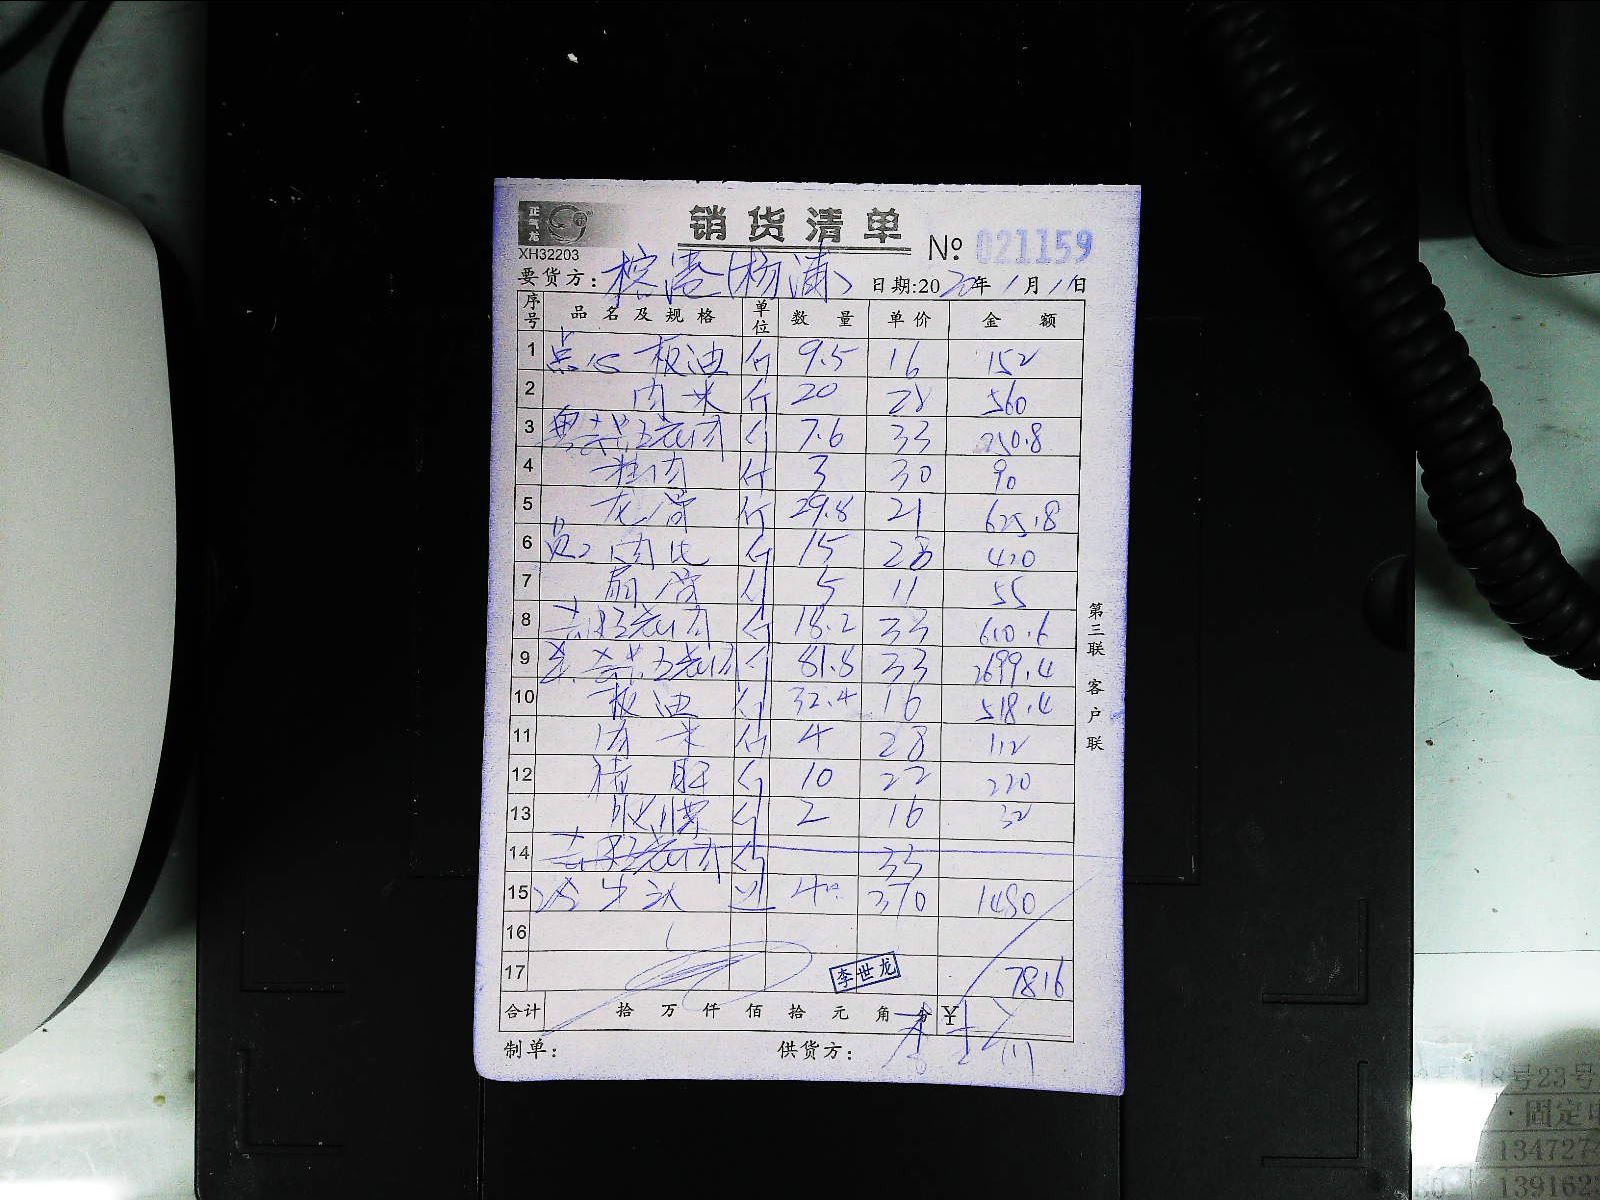 正气龙
销货清单
XH32203
№ 021159
要货方：榕港(杨浦) 日期:2020年1月1日
序号 品名及规格 单位 数量 单价 金额
1 点心 板油 斤 9.5 16 152
2 肉米 斤 20 28 560
3 粤菜 五花肉 斤 7.6 33 250.8
4 斤 3 30 90
5 龙骨 斤 29.8 21 625.8
6 员工 肉 斤 15 28 420
7 扇骨 斤 5 11 55
8 五花肉 斤 18.2 33 610.6
9 五花肉 斤 81.8 33 2699.4
10 板油 斤 32.4 16 518.4
11 肉米 斤 4 28 112
12 猪肝 斤 10 22 220
13 斤 2 16 32
14 斤 33
15 4 370 1480
16
17 7816
李世龙
合计 拾 万 仟 佰 拾 元 角 分 ¥
制单： 供货方：
第三联 客户联
18号23号
固定电
134727
1391623